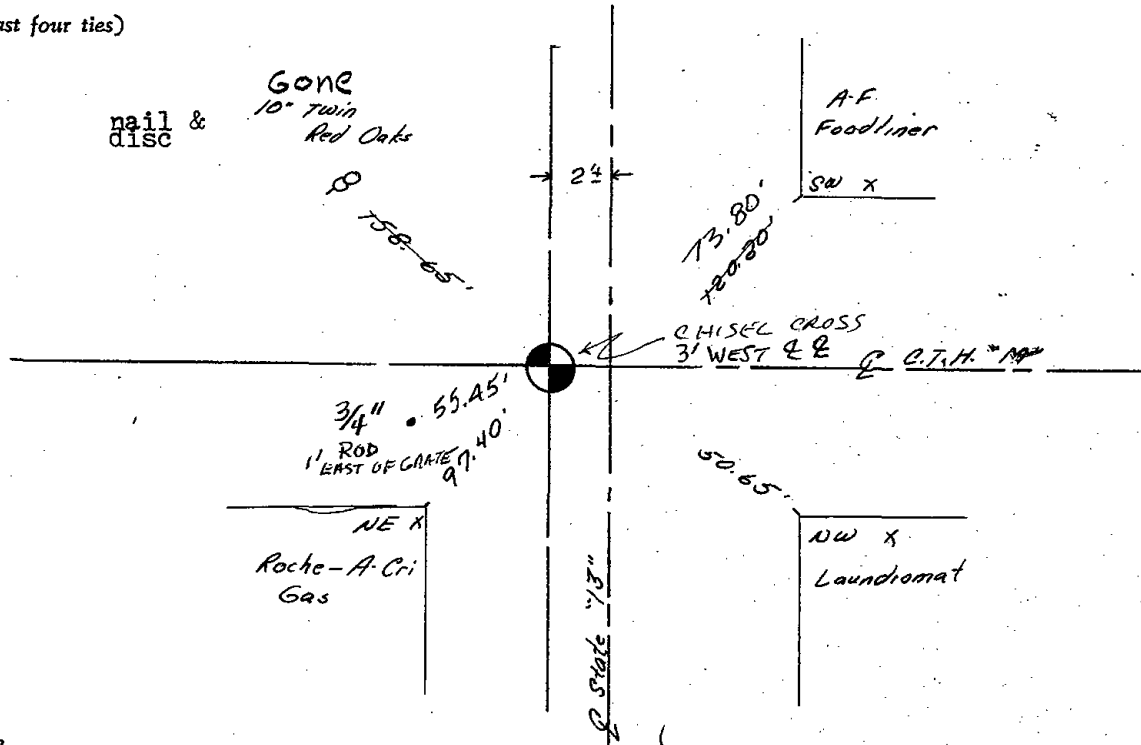 ast four ties)
nail &
disc
Gone
10" Twin
Red Oaks
158.65'
2 4
A-F
Foodliner
SW X
73.80'
CHISEL CROSS
3' WEST ℄ ℄
℄ C.T.H. "M"
3/4" 55.45'
1' ROD
EAST OF GRATE
97.40'
50.65'
NE X
Roche-A-Cri
Gas
NW X
Laundromat
℄ State "13"